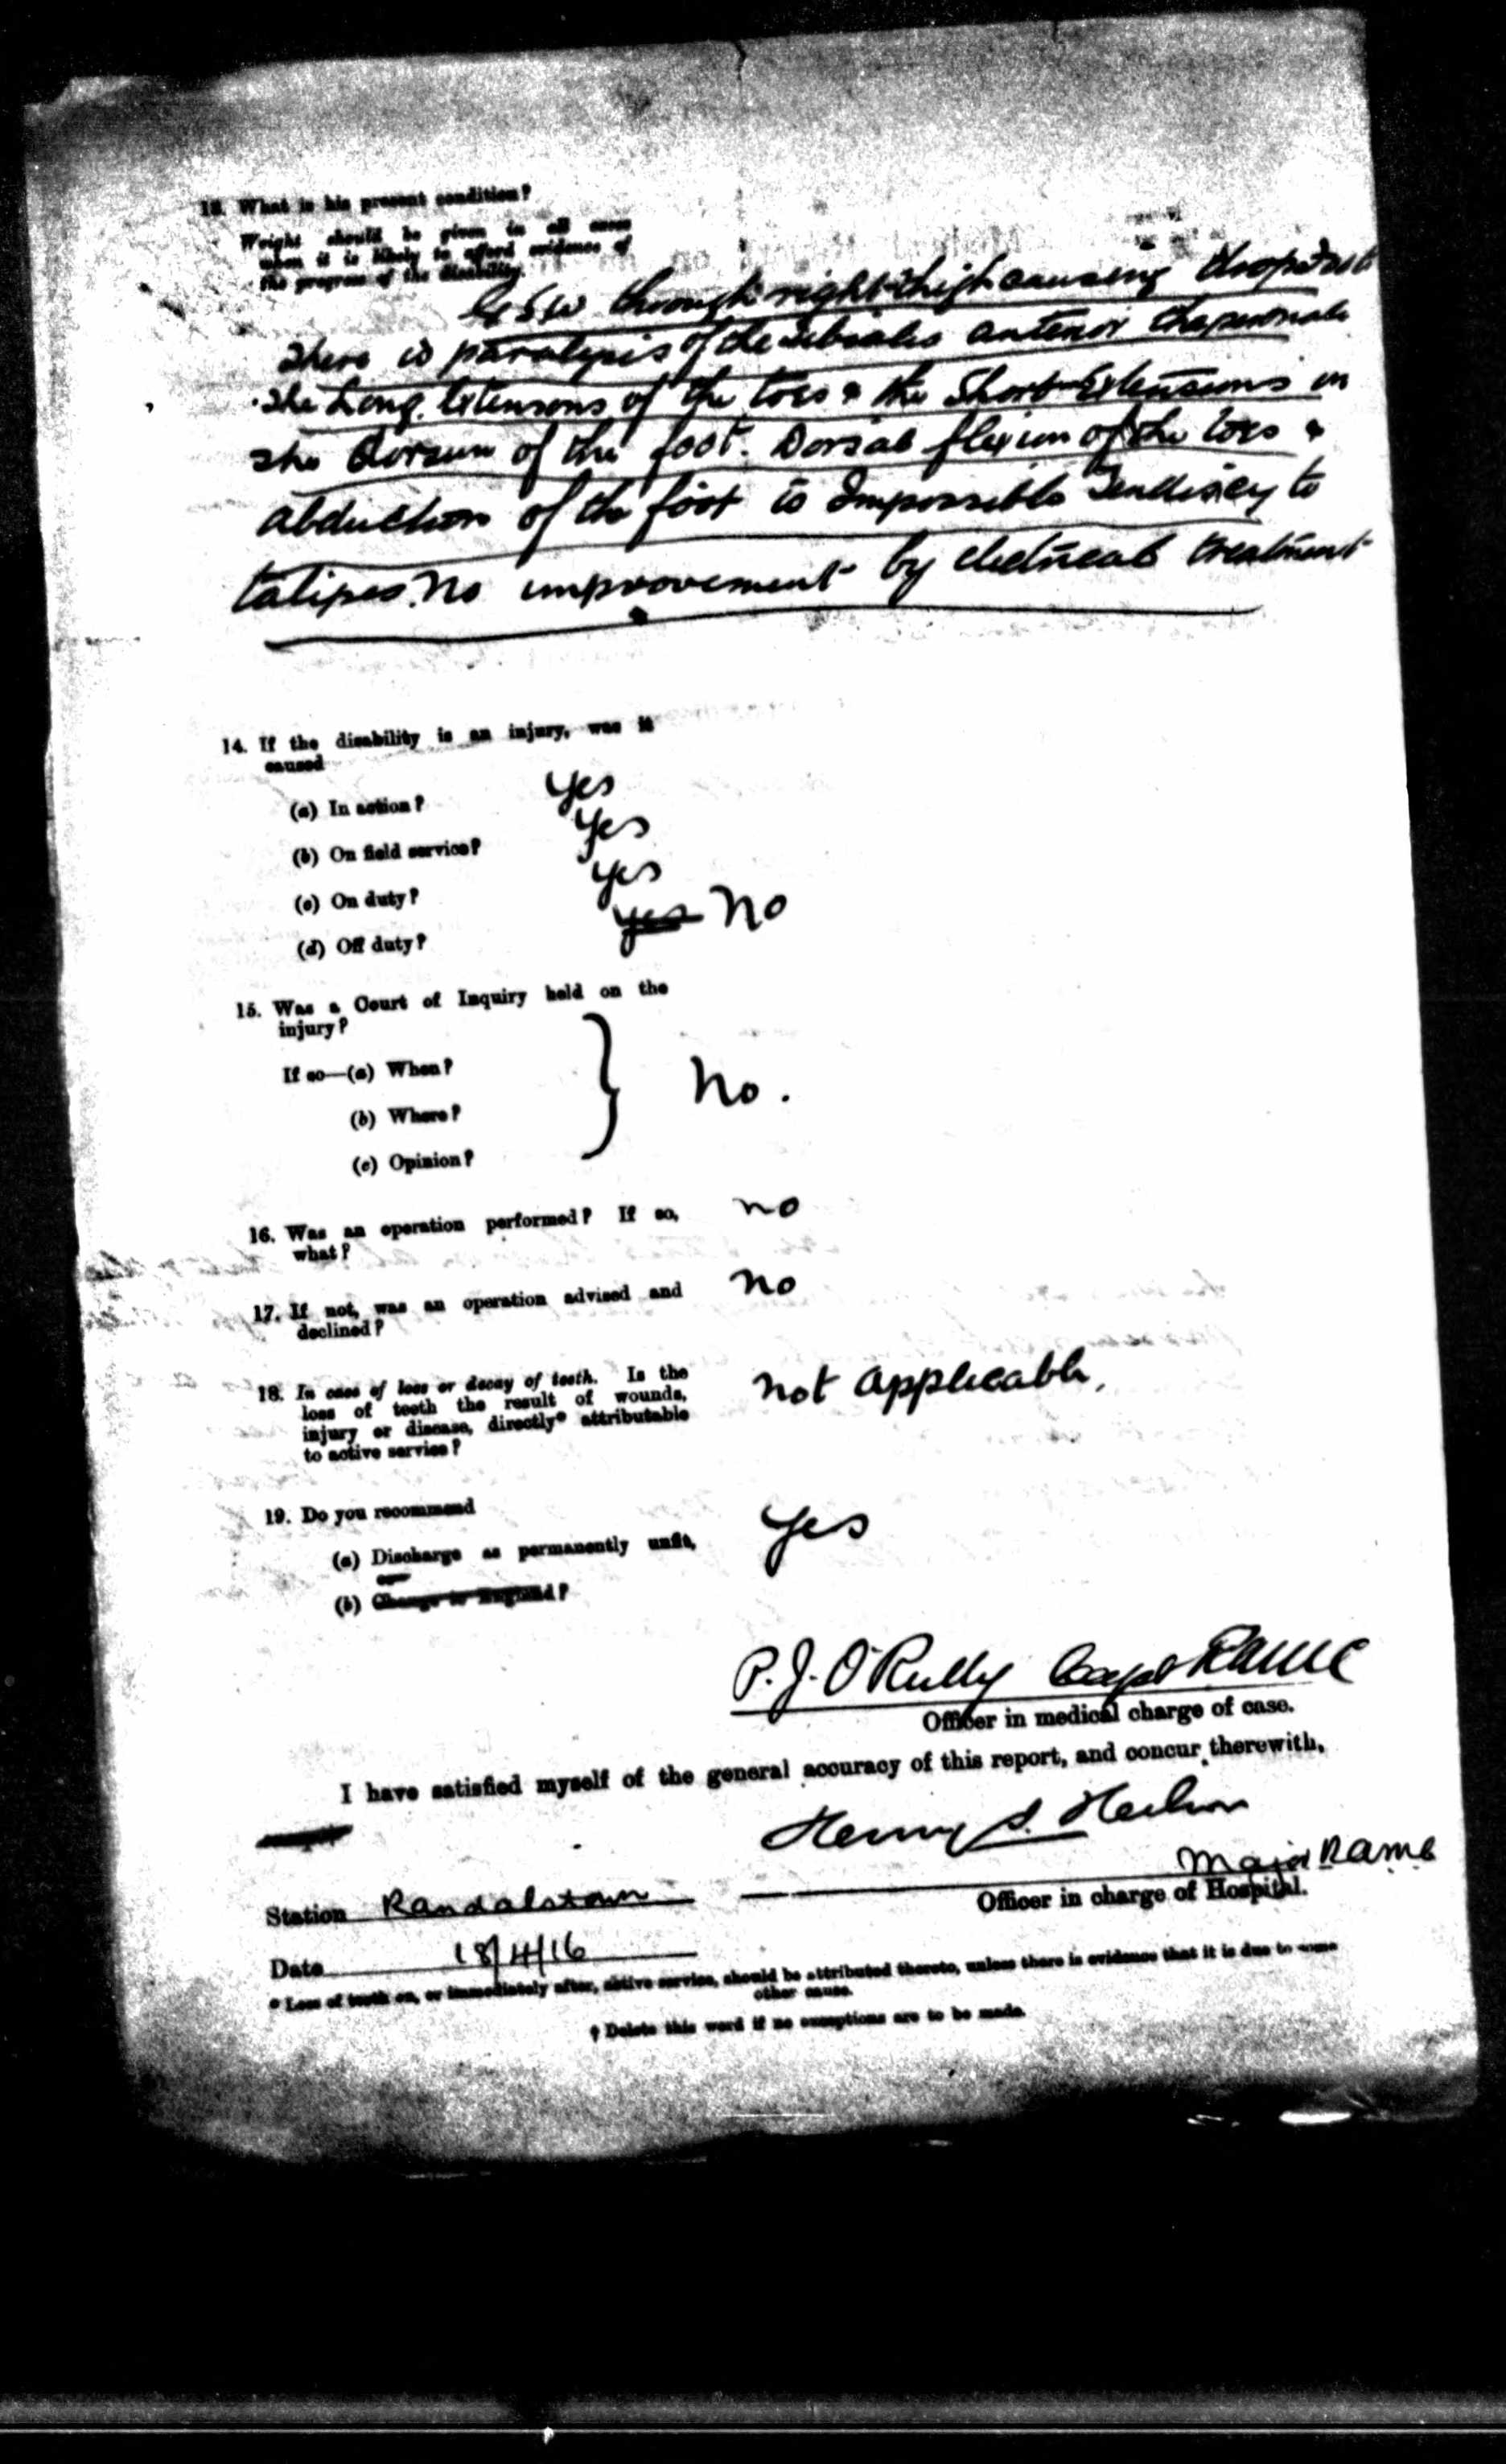 13. What is his present condition?
Weight should be given in all cases
when it is likely to afford evidence of
the progress of the disability.
G S W through right thigh causing dropfoot
There is paralysis of the tibialis anterior the peronals
the Long Extensors of the toes & the Short Extensions on
the dorsum of the foot. Dorsal flexion of the toes &
abduction of the foot is Impossible Tendency to
talipes. No improvement by electrical treatment
14. If the disability is an injury, was it
caused
(a) In action? Yes
(b) On field service? Yes
(c) On duty? Yes
(d) Off duty? yes No
15. Was a Court of Inquiry held on the
injury?
If so—(a) When?
(b) Where? No.
(c) Opinion?
16. Was an operation performed? If so, no
what?
17. If not, was an operation advised and no
declined?
18. In case of loss or decay of teeth. Is the
loss of teeth the result of wounds, not applicable,
injury or disease, directly* attributable
to active service?
19. Do you recommend
(a) Discharge as permanently unfit, Yes
or
(b) Change to England?
P. J. O'Reilly Capt RAMC
Officer in medical charge of case.
I have satisfied myself of the general accuracy of this report, and concur therewith,
Henry S.
Major RAMC
Officer in charge of Hospital.
Station Randalstown
Date 18/4/16
* Loss of teeth on, or immediately after, active service, should be attributed thereto, unless there is evidence that it is due to some
other cause.
† Delete this word if no exceptions are to be made.